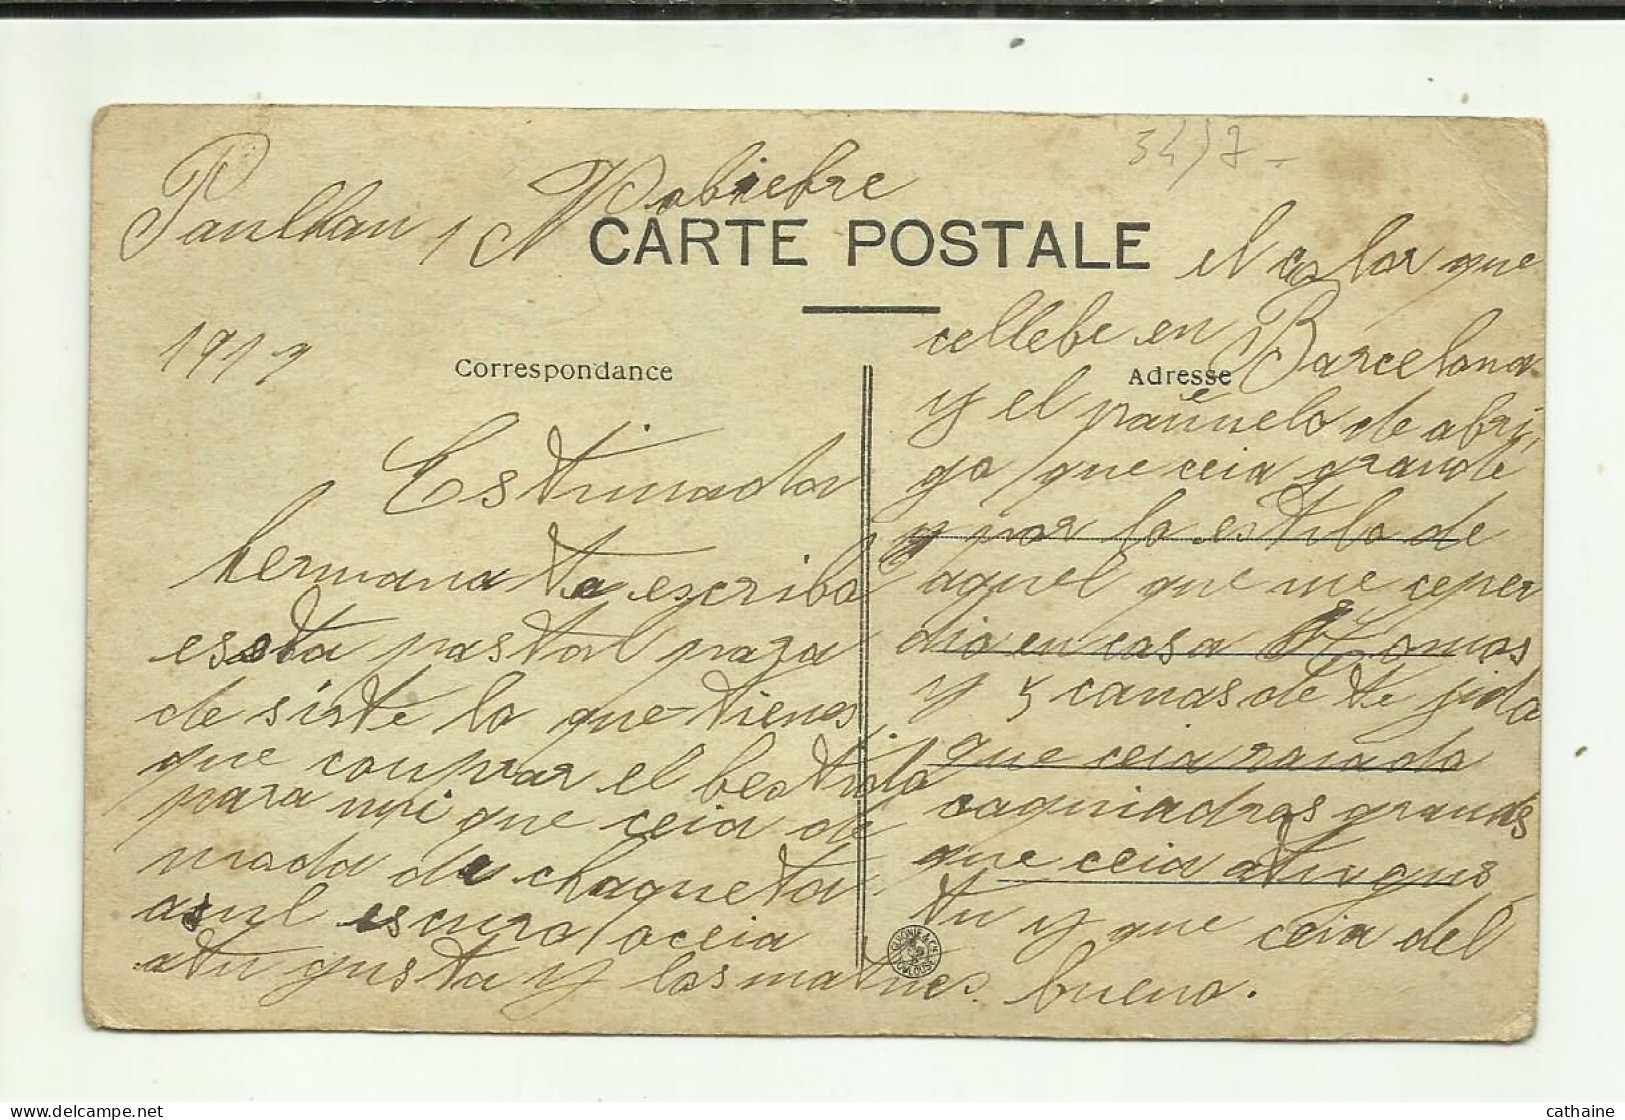 34)7-
Paulhan 1 Nobiebre
CARTE POSTALE
1919
Correspondance
Estimada
hermana te escribo
esta pastal paza
de sirte lo que tienes
que conprar el bestido
para mi que ceia de
moda de chaqueta
asul escuro o ceia
atu gusta y las matnes
el color que
cellebe en Barcelona
Adresse
y el pañuelo de abri
go que ceia grande
y por lo estilo de
aquel que me ceper
dio en casa Ramos
y 5 canas de te jido
que ceia raiado
caquiadros grandes
que ceia atu gus
tu y que ceia del
bueno.
TOULOUSE
cathaine